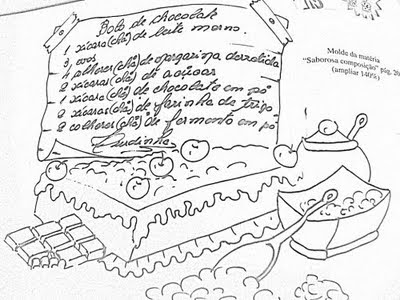 Bolo de chocolate
1 xícara (chá) de leite morno.
3 ovos
4 colheres (chá) de margarina derretida
2 xícaras (chá) de açúcar
1 xícara (chá) de chocolate em pó
2 xícaras (chá) de farinha de trigo
2 colheres (chá) de fermento em pó
Molde da matéria
"Saborosa composição" pág. 20
(ampliar 140%)